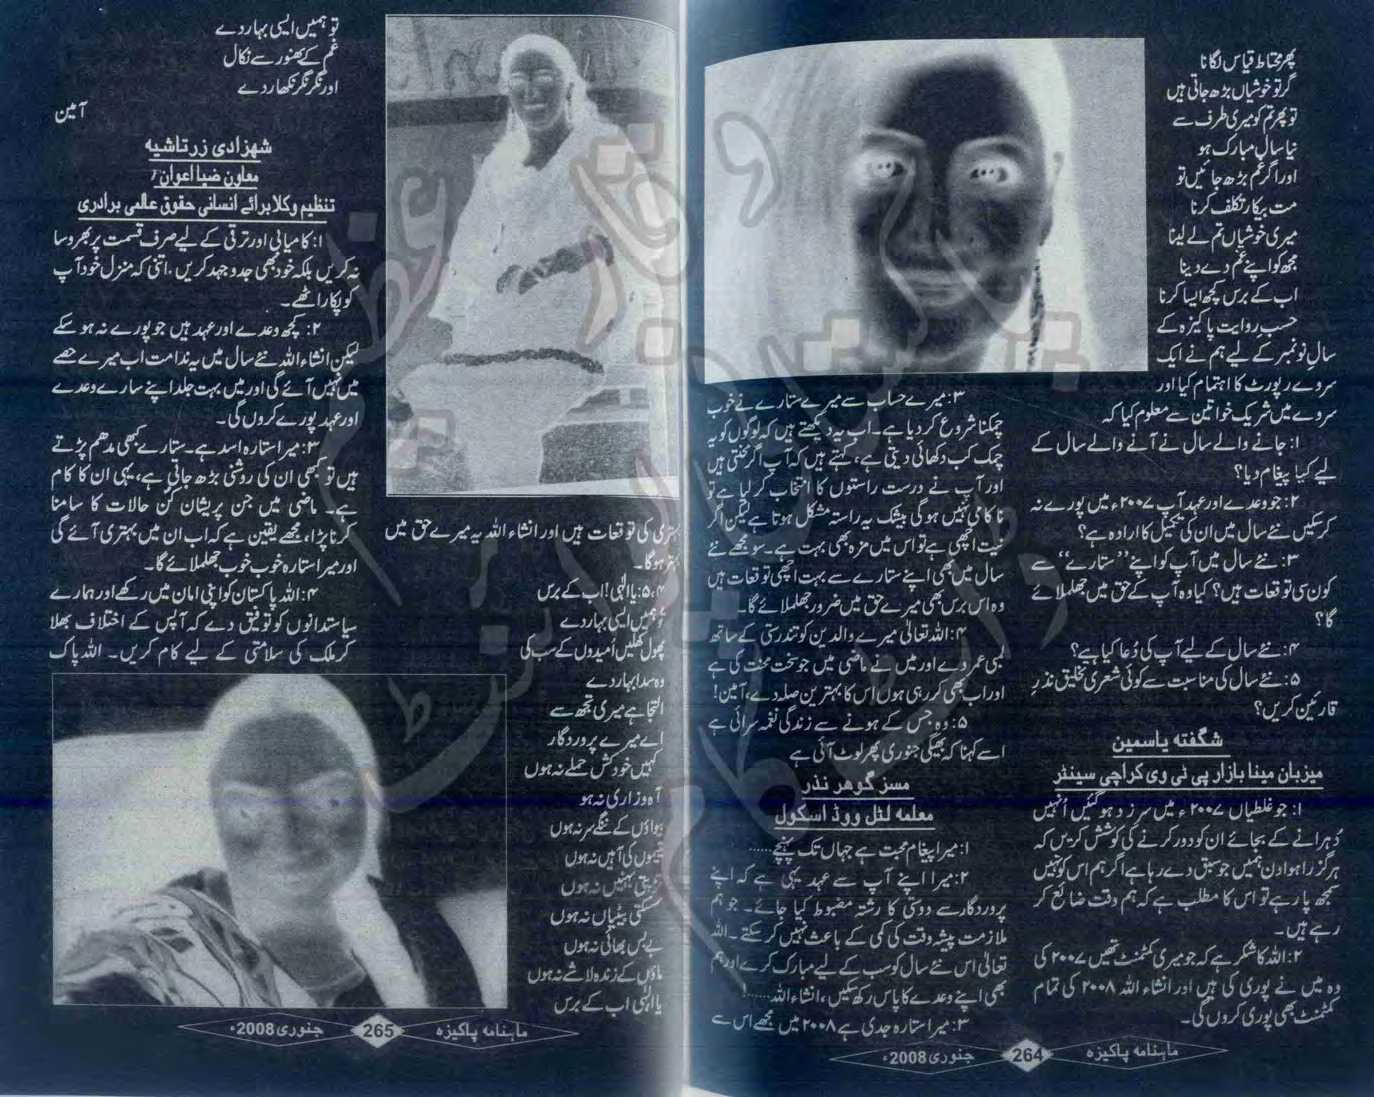 پھر محتاط قیاس لگانا
گر تو خوشیاں بڑھ جاتی ہیں
تو پھر تم کو میری طرف سے
نیا سال مبارک ہو
اور اگر غم بڑھ جائیں تو
مت بیکار تکلف کرنا
میری خوشیاں تم لے لینا
مجھ کو اپنے غم دے دینا
اب کے برس کچھ ایسا کرنا
حسبِ روایت پاکیزہ کے
سالِ نو نمبر کے لیے ہم نے ایک
سروے رپورٹ کا اہتمام کیا اور
سروے میں شریک خواتین سے معلوم کیا کہ
۱: جانے والے سال نے آنے والے سال کے
لیے کیا پیغام دیا؟
۲: جو وعدے اور عہد آپ ۲۰۰۷ء میں پورے نہ
کرسکیں نئے سال میں ان کی تکمیل کا ارادہ ہے؟
۳: نئے سال میں آپ کو اپنے ’’ستارے‘‘ سے
کون سی توقعات ہیں؟ کیا وہ آپ کے حق میں جھلملائے
گا؟
۴: نئے سال کے لیے آپ کی دُعا کیا ہے؟
۵: نئے سال کی مناسبت سے کوئی شعری تخلیق نذرِ
قارئین کریں؟
شگفتہ یاسمین
میزبان مینا بازار پی ٹی وی کراچی سینٹر
۱: جو غلطیاں ۲۰۰۷ء میں سرزد ہوگئیں اُنہیں
دُہرانے کے بجائے ان کو دور کرنے کی کوشش کریں کہ
ہر گزرا ہوا دن ہمیں جو سبق دے رہا ہے اگر ہم اس کو نہیں
سمجھ پا رہے تو اس کا مطلب ہے کہ ہم وقت ضائع کر
رہے ہیں۔
۲: اللہ کا شکر ہے کہ جو میری کمٹمنٹ تھیں ۲۰۰۷ کی
وہ میں نے پوری کی ہیں اور انشاء اللہ ۲۰۰۸ کی تمام
کمٹمنٹ بھی پوری کروں گی۔
۳: میرے حساب سے میرے ستارے نے خوب
چمکنا شروع کردیا ہے۔ اب یہ دیکھتے ہیں کہ لوگوں کو یہ
چمک کب دکھائی دیتی ہے، کہتے ہیں کہ آپ اگر محنتی ہیں
اور آپ نے درست راستوں کا انتخاب کرلیا ہے تو
ناکامی نہیں ہوگی بیشک یہ راستہ مشکل ہوتا ہے لیکن اگر
نیت اچھی ہے تو اس میں مزہ بھی بہت ہے۔ سو مجھے نئے
سال میں بھی اپنے ستارے سے بہت اچھی توقعات ہیں
وہ اس برس بھی میرے حق میں ضرور جھلملائے گا۔
۴: اللہ تعالیٰ میرے والدین کو تندرستی کے ساتھ
لمبی عمر دے اور میں نے ماضی میں جو سخت محنت کی ہے
اور اب بھی کر رہی ہوں اس کا بہترین صلہ دے، آمین!
۵: وہ جس کے ہونے سے زندگی نغمہ سرائی ہے
اسے کہنا کہ بھیگی جنوری پھر لوٹ آئی ہے
مسز گوہر نذر
معلمہ لٹل ووڈ اسکول
۱: میرا پیغام محبت ہے جہاں تک پہنچے......
۲: میرا اپنے آپ سے عہد یہی ہے کہ اپنے
پروردگار سے دوستی کا رشتہ مضبوط کیا جائے۔ جو ہم
ملازمت پیشہ وقت کی کمی کے باعث نہیں کرسکتے۔ اللہ
تعالیٰ اس نئے سال کو سب کے لیے مبارک کرے اور ہم
بھی اپنے وعدے کا پاس رکھ سکیں، انشاء اللہ......!
۳: میرا ستارہ جدی ہے ۲۰۰۸ میں مجھے اس سے
ماہنامہ پاکیزہ 264 جنوری 2008ء
بہتری کی توقعات ہیں اور انشاء اللہ یہ میرے حق میں
بہتر ہوگا۔
۴،۵: یا الٰہی! اب کے برس
تو ہمیں ایسی بہار دے
پھول کھلیں اُمیدوں کے سب کی
وہ سدا بہار دے
التجا ہے میری تجھ سے
اے میرے پروردگار
کہیں خودکش حملے نہ ہوں
آہ و زاری نہ ہو
بیواؤں کے ننگے سر نہ ہوں
یتیموں کی آہیں نہ ہوں
تڑپتی بہنیں نہ ہوں
سسکتی بیٹیاں نہ ہوں
بے بس بھائی نہ ہوں
ماؤں کے زندہ لاشے نہ ہوں
یا الٰہی اب کے برس
تو ہمیں ایسی بہار دے
غم کے بھنور سے نکال
اور نگر نگر نکھار دے
آمین
شہزادی زرتاشیہ
معاون ضیا اعوان
تنظیم وکلا برائے انسانی حقوق عالمی برادری
۱: کامیابی اور ترقی کے لیے صرف قسمت پر بھروسا
نہ کریں بلکہ خود بھی جدوجہد کریں، اتنی کہ منزل خود آپ
کو پکار اٹھے۔
۲: کچھ وعدے اور عہد ہیں جو پورے نہ ہوسکے
لیکن انشاء اللہ نئے سال میں یہ ندامت اب میرے حصے
میں نہیں آئے گی اور میں بہت جلد اپنے سارے وعدے
اور عہد پورے کروں گی۔
۳: میرا ستارہ اسد ہے۔ ستارے کبھی مدھم پڑتے
ہیں تو کبھی ان کی روشنی بڑھ جاتی ہے، یہی ان کا کام
ہے۔ ماضی میں جن پریشان کُن حالات کا سامنا
کرنا پڑا، مجھے یقین ہے کہ اب ان میں بہتری آئے گی
اور میرا ستارہ خوب خوب جھلملائے گا۔
۴: اللہ پاکستان کو اپنی امان میں رکھے اور ہمارے
سیاستدانوں کو توفیق دے کہ آپس کے اختلاف بھلا
کر ملک کی سلامتی کے لیے کام کریں۔ اللہ پاک
ماہنامہ پاکیزہ 265 جنوری 2008ء